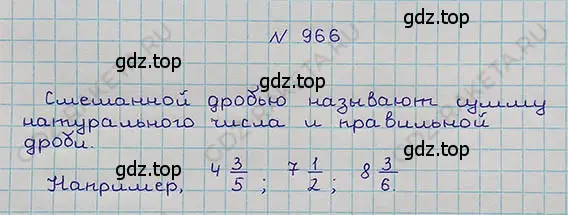 N 966
gdz.top
gdz.top
Смешанной дробью называют сумму
натурального числа и правильной
дроби.
gdz.top gdz.top
Например, 4 3/5; 7 1/2; 8 3/6.
gdz.top gdz.top